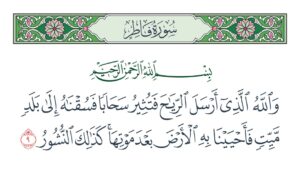 سُورَةُ فَاطِرٍ
بِسْمِ اللَّهِ الرَّحْمَٰنِ الرَّحِيمِ
وَاللَّهُ الَّذِي أَرْسَلَ الرِّيَاحَ فَتُثِيرُ سَحَابًا فَسُقْنَاهُ إِلَىٰ بَلَدٍ
مَّيِّتٍ فَأَحْيَيْنَا بِهِ الْأَرْضَ بَعْدَ مَوْتِهَا كَذَٰلِكَ النُّشُورُ ٩